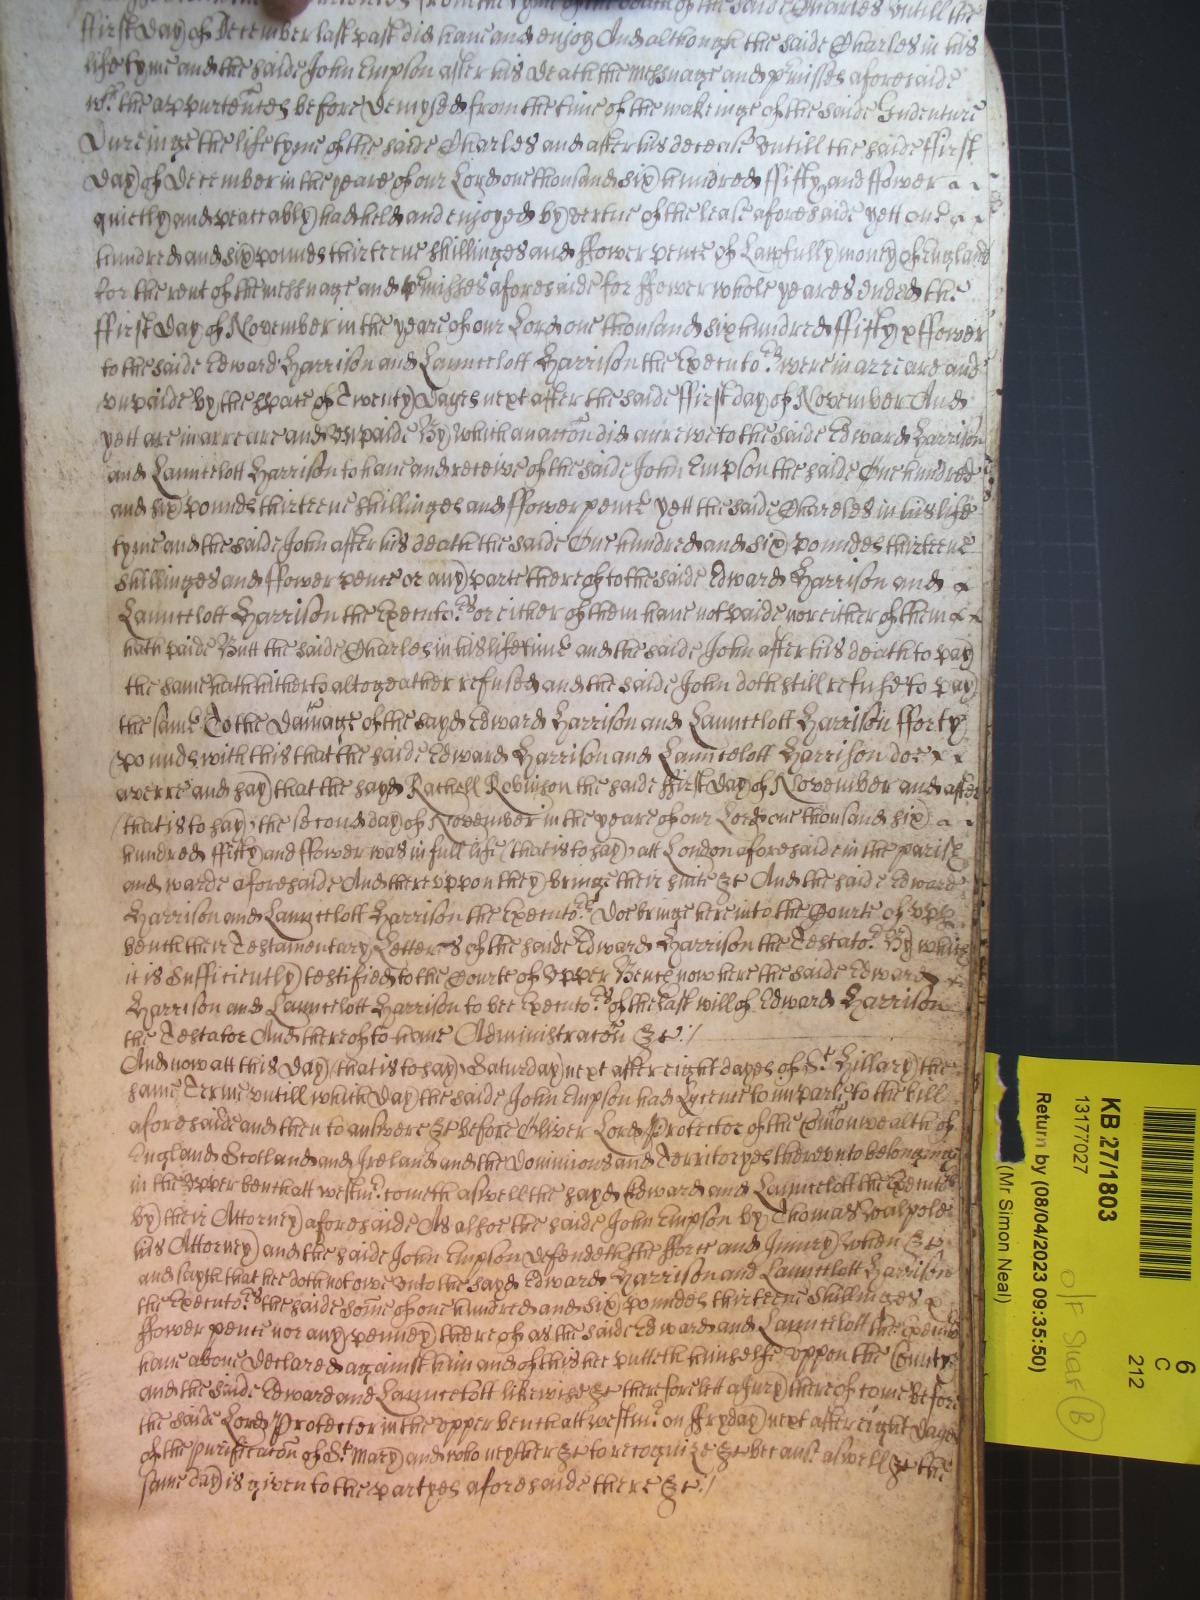 from the tyme of the death of the saide Charles untill the
ffirst day of December last past did have and enjoy And although the saide Charles in his
life tyme and the saide John Empson after his death the messuage and p'misses aforesaide
wth the appurtences before demysed from the time of the makeinge of the saide Indenture
Dureinge the life tyme of the saide Charles and after his decease untill the saide ffirst
day of December in the yeare of our Lord one thousand six hundred ffifty and ffower
quietly and peaceably had held and enjoyed by vertue of the lease aforesaide yett one
hundred and six poundes thirteene shillinges and ffower pence of Lawfully money of England
for the rent of the messuage and p'misses aforesaide for ffower whole yeares ended the
ffirst day of November in the yeare of our Lord one thousand six hundred ffifty & ffower
to the saide Edward Harrison and Launcelott Harrison the Executors were in arreare and
unpaide by the space of Twenty dayes next after the saide ffirst day of November And
yett are in arreare and unpaide By which an accon did accrewe to the saide Edward Harrison
and Launcelott Harrison to have and receive of the saide John Empson the saide One hundred
and six poundes thirteene shillinges and ffower pence yett the saide Charles in his life
tyme and the saide John after his death the saide One hundred and six poundes thirteene
shillinges and ffower pence or any parte thereof to the saide Edward Harrison and
Launcelott Harrison the Executors or either of them have not paide nor either of them
hath paide Butt the saide Charles in his life time and the saide John after his death to pay
the same hath hitherto altogeather refused and the saide John doth still refuse to pay
the same To the damage of the sayd Edward Harrison and Launcelott Harrison fforty
poundes with this that the saide Edward Harrison and Launcelott Harrison doe
averre and say that the sayd Rachell Robinson the saide ffirst day of November and after
(that is to say) the second day of November in the yeare of our Lord one thousand six
hundred ffifty and ffower was in full life (that is to say) att London aforesaide in the parish
and warde aforesaide And thereuppon they bringe their suite &c And the saide Edward
Harrison and Launcelott Harrison the Executors Doe bringe here into the Courte of upp
bench their Testamentary Letteres of the saide Edward Harrison the Testator By which
it is sufficiently testified to the Courte of Upper Bench now here the saide Edward
Harrison and Launcelott Harrison to bee Executors of the last will of Edward Harrison
the Testator And thereof to have Administracon &c:/
And now att this day (that is to say) Saturday next after eight dayes of St Hillary the
same Terme untill which day the saide John Empson had Lycence to imparle to the bill
aforesaide and then to answere &c before Oliver Lord Protector of the Comonwealth of
England Scotland and Ireland and the Dominions and Territoryes thereunto belonging
in the upper bench att westmr cometh aswell the sayd Edward and Launcelott the Executors
by their Attorney aforesaide As alsoe the saide John Empson by Thomas Walpole
his Attorney and the saide John Empson defendeth the fforce and Injury when &c
and sayth that hee doth not owe unto the sayd Edward Harrison and Launcelott Harrison
the Executors the saide some of one hundred and six poundes thirteene shillinges &
ffower pence nor any penney thereof as the saide Edward and Launcelott the Executors
have above declared against him and of this hee putteth himselfe uppon the Countye
and the saide Edward and Launcelott likewise &c therefore lett a Jury thereof come before
the saide Lord Protector in the upper bench att westmr on ffryday next after eight dayes
of the purificacon of St Mary and who neyther &c to recognize &c because aswell &c the
same day is given to the partyes aforesaide there &c:/
KB 27/1803
13177027
Return by (08/04/2023 09:35:50)
(Mr Simon Neal)
6
C
212
O/F Shelf (B)